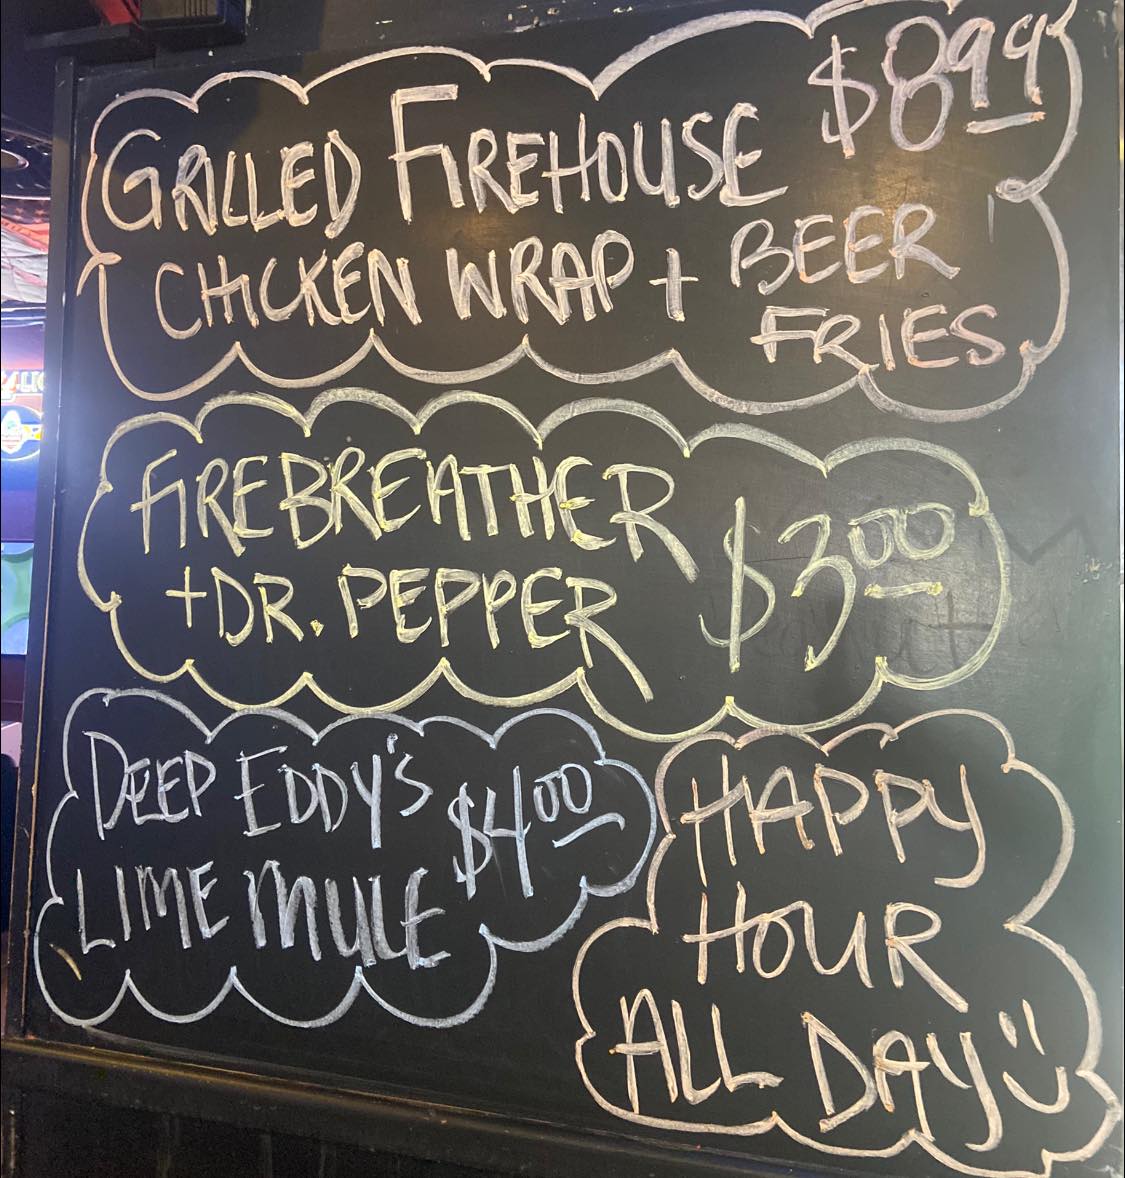 $8.99
GRILLED FIREHOUSE
CHICKEN WRAP + BEER
FRIES
FIREBREATHER
+ DR. PEPPER $3.00
DEEP EDDY'S
LIME MULE $4.00
HAPPY
HOUR
ALL DAY :)